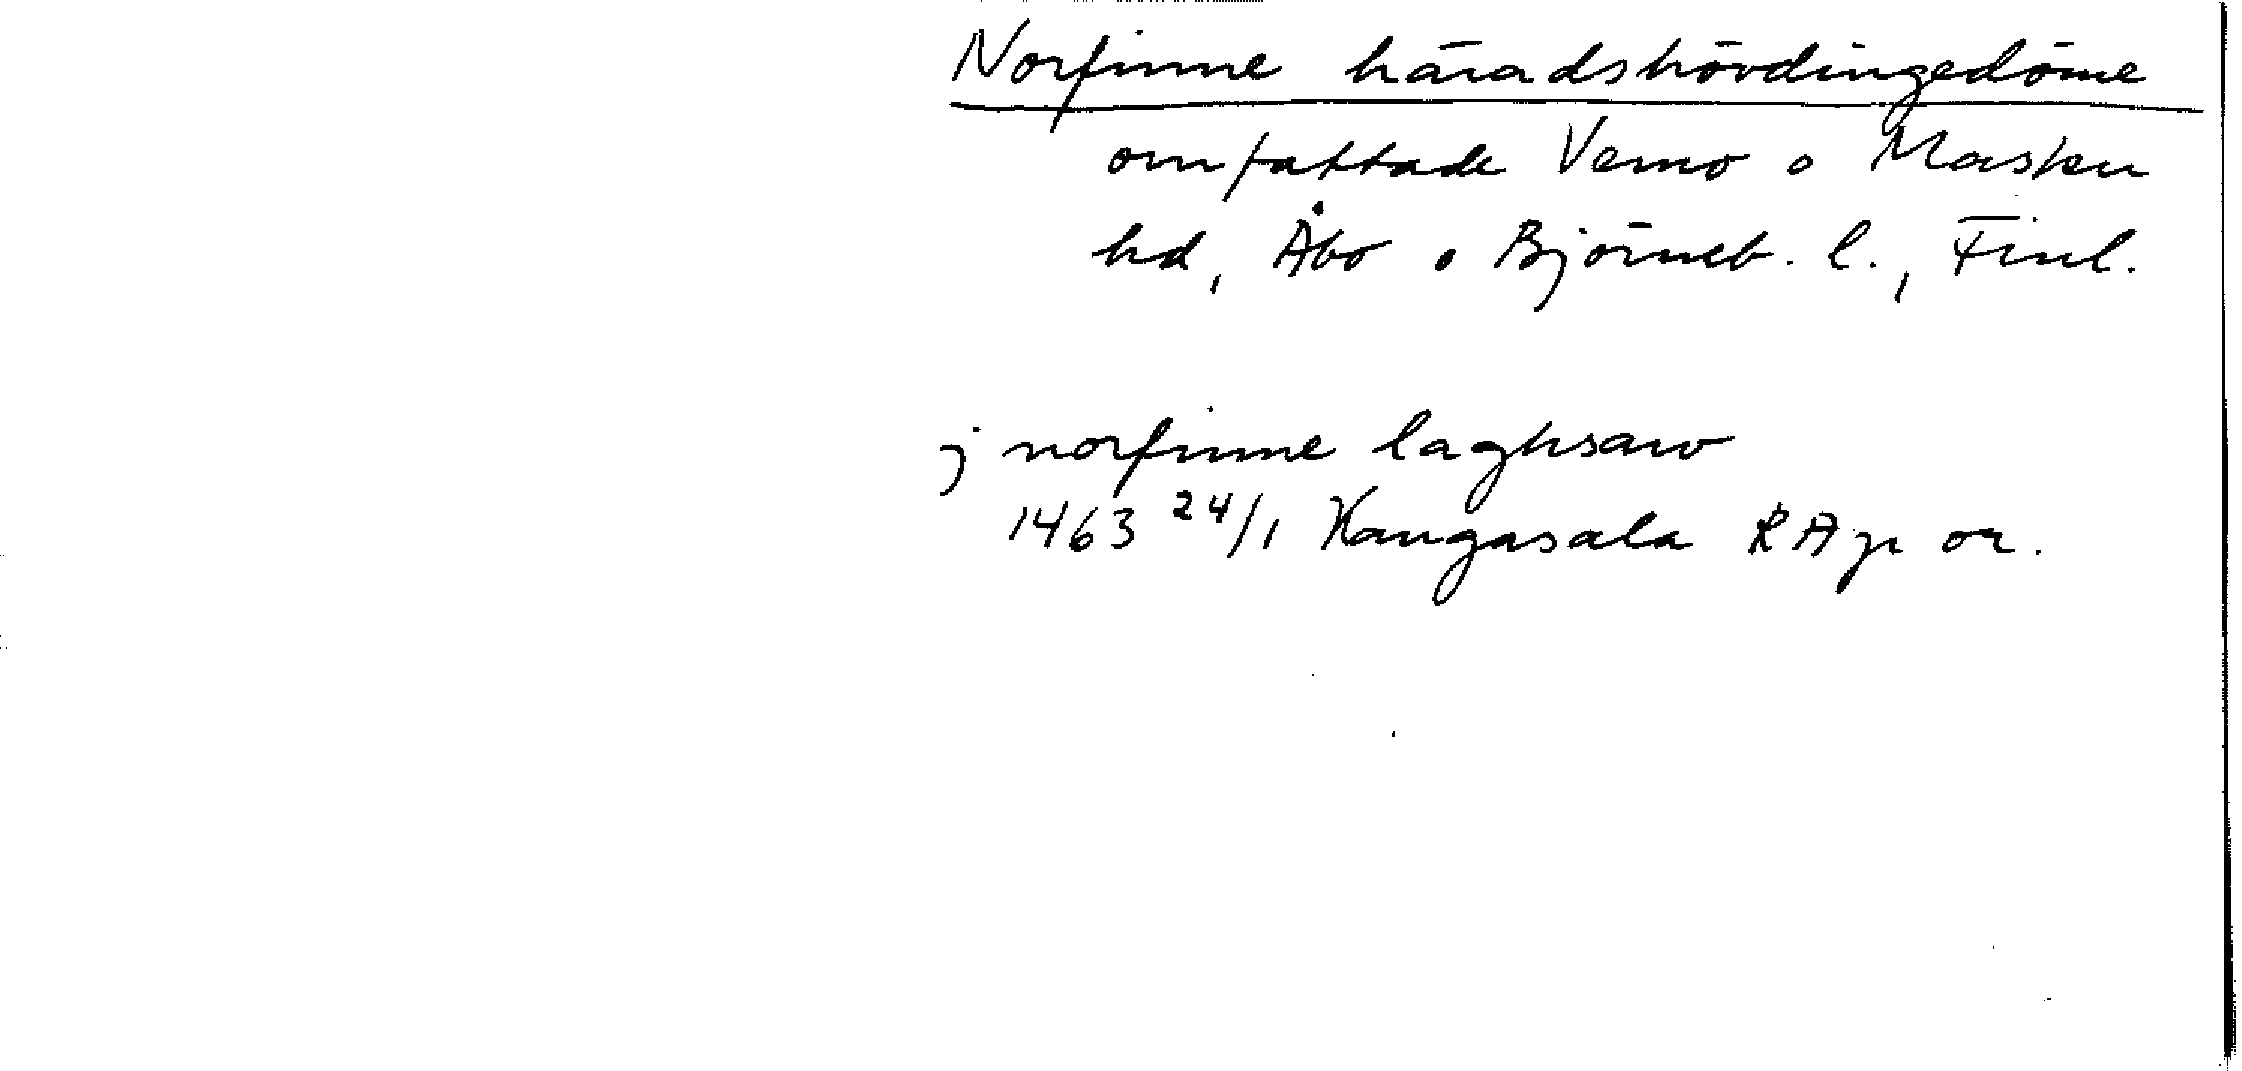 Norfinne häradshövdingedöme
omfattade Vemo o Masku
hd, Åbo o Björneb. l., Finl.
j norfinne laghsaw
1463 24/1 Kangasala RAp or.